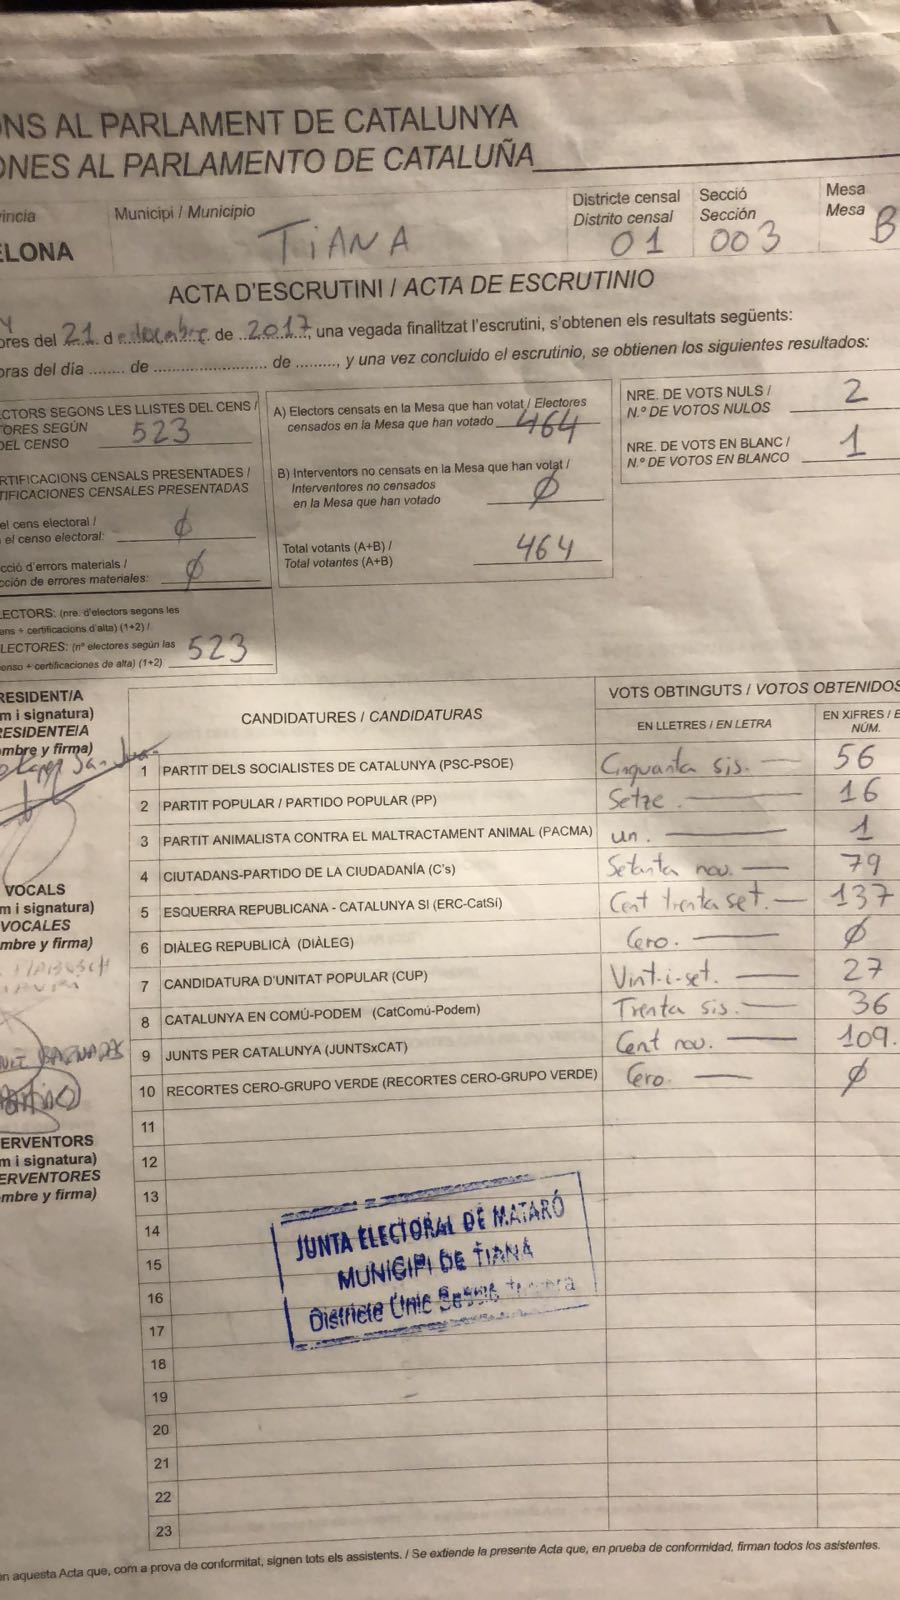 ONS AL PARLAMENT DE CATALUNYA
ONES AL PARLAMENTO DE CATALUÑA
vincia
Municipi / Municipio
Districte censal
Distrito censal
Secció
Sección
Mesa
Mesa
ELONA
TiANA
01
003
B
ACTA D'ESCRUTINI / ACTA DE ESCRUTINIO
ores del 21 d de de 2017, una vegada finalitzat l'escrutini, s'obtenen els resultats següents:
oras del día ........ de .......................... de ........., y una vez concluido el escrutinio, se obtienen los siguientes resultados:
ECTORS SEGONS LES LLISTES DEL CENS /
TORES SEGÚN
DEL CENSO 523
RTIFICACIONS CENSALS PRESENTADES /
TIFICACIONES CENSALES PRESENTADAS
el cens electoral /
n el censo electoral: Ø
cció d'errors materials /
cción de errores materiales: Ø
LECTORS: (nre. d'electors segons les
ens + certificacions d'alta) (1+2) /
LECTORES: (nº electores según las
censo + certificaciones de alta) (1+2) 523
A) Electors censats en la Mesa que han votat / Electores
censados en la Mesa que han votado 464
B) Interventors no censats en la Mesa que han votat /
Interventores no censados
en la Mesa que han votado Ø
Total votants (A+B) /
Total votantes (A+B) 464
NRE. DE VOTS NULS /
N.º DE VOTOS NULOS 2
NRE. DE VOTS EN BLANC /
N.º DE VOTOS EN BLANCO 1
RESIDENT/A
m i signatura)
RESIDENTE/A
ombre y firma)
CANDIDATURES / CANDIDATURAS
VOTS OBTINGUTS / VOTOS OBTENIDOS
EN LLETRES / EN LETRA
EN XIFRES / E
NÚM.
1 PARTIT DELS SOCIALISTES DE CATALUNYA (PSC-PSOE) Cinquanta sis. 56
2 PARTIT POPULAR / PARTIDO POPULAR (PP) Setze 16
3 PARTIT ANIMALISTA CONTRA EL MALTRACTAMENT ANIMAL (PACMA) un. 1
4 CIUTADANS-PARTIDO DE LA CIUDADANÍA (C's) Setanta nou. 79
5 ESQUERRA REPUBLICANA - CATALUNYA SI (ERC-CatSí) Cent trenta set. 137
6 DIÀLEG REPUBLICÀ (DIÀLEG) Cero. Ø
7 CANDIDATURA D'UNITAT POPULAR (CUP) Vint-i-set. 27
8 CATALUNYA EN COMÚ-PODEM (CatComú-Podem) Trenta sis. 36
9 JUNTS PER CATALUNYA (JUNTSxCAT) Cent nou. 109.
10 RECORTES CERO-GRUPO VERDE (RECORTES CERO-GRUPO VERDE) Cero. Ø
VOCALS
m i signatura)
VOCALES
mbre y firma)
11
ERVENTORS
m i signatura)
ERVENTORES
mbre y firma)
12
13
14
15
16
17
18
19
20
21
22
23
JUNTA ELECTORAL DE MATARÓ
MUNICIPI DE TIANA
Districte Únic Secció Tercera
en aquesta Acta que, com a prova de conformitat, signen tots els assistents. / Se extiende la presente Acta que, en prueba de conformidad, firman todos los asistentes.